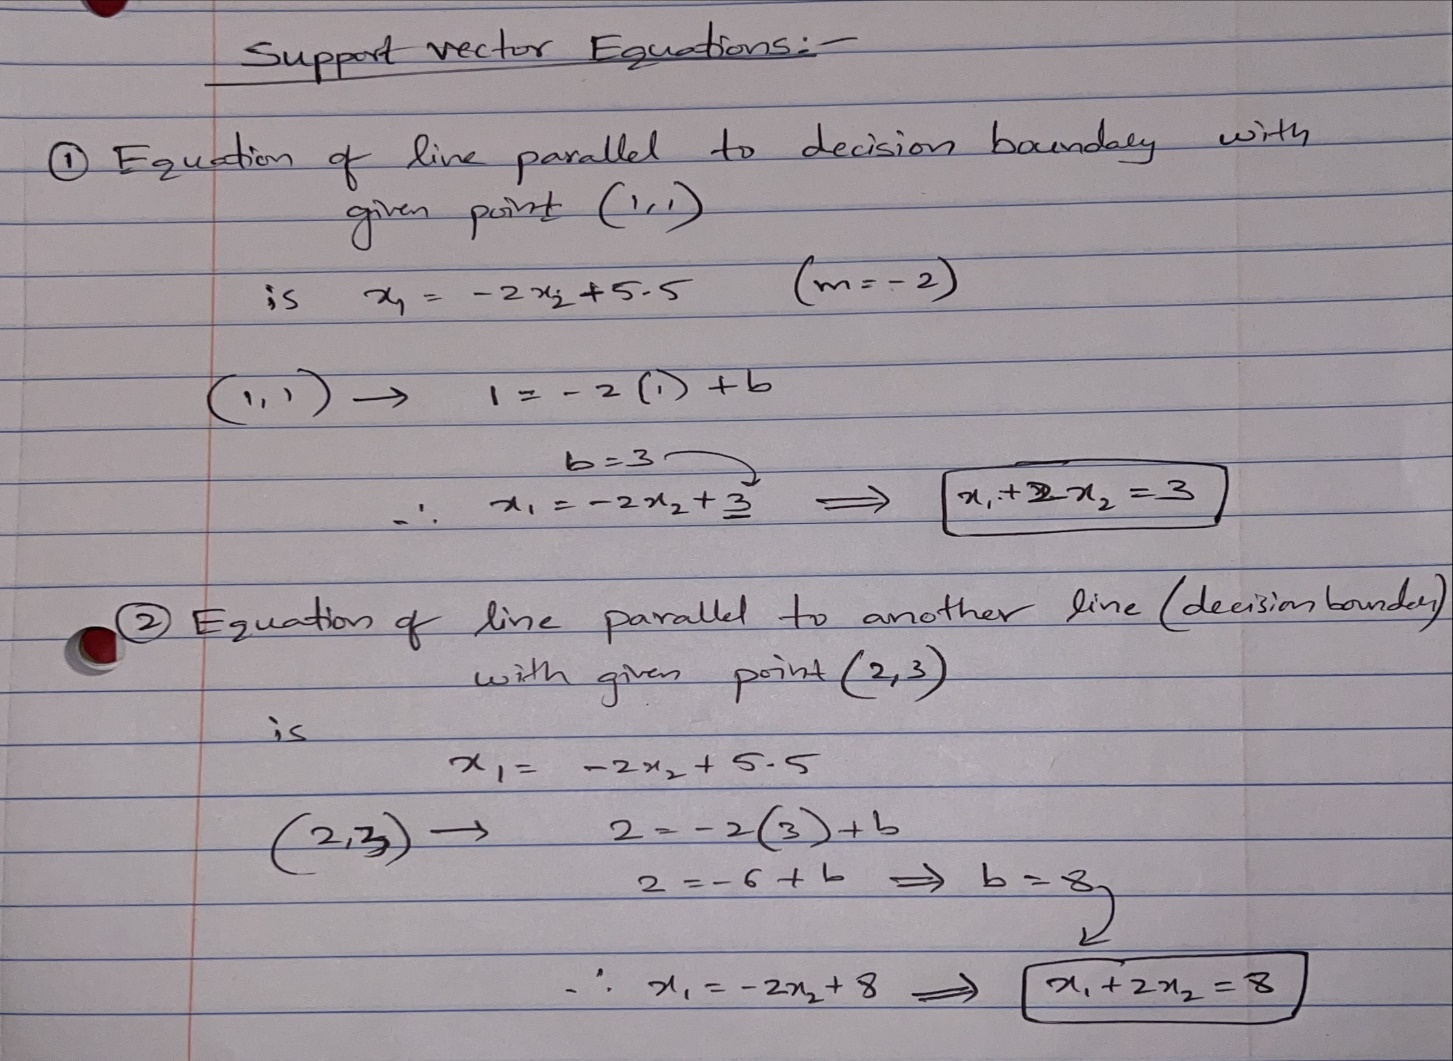 Support vector Equations:-
① Equation of line parallel to decision boundary with
given point (1,1)
is x₁ = -2x₂ + 5.5 (m = -2)
(1,1) → 1 = -2(1) + b
b = 3
∴ x₁ = -2x₂ + 3 ⇒ x₁ + 2x₂ = 3
② Equation of line parallel to another line (decision boundary)
with given point (2,3)
is
x₁ = -2x₂ + 5.5
(2,3) → 2 = -2(3) + b
2 = -6 + b ⇒ b = 8
∴ x₁ = -2x₂ + 8 ⇒ x₁ + 2x₂ = 8